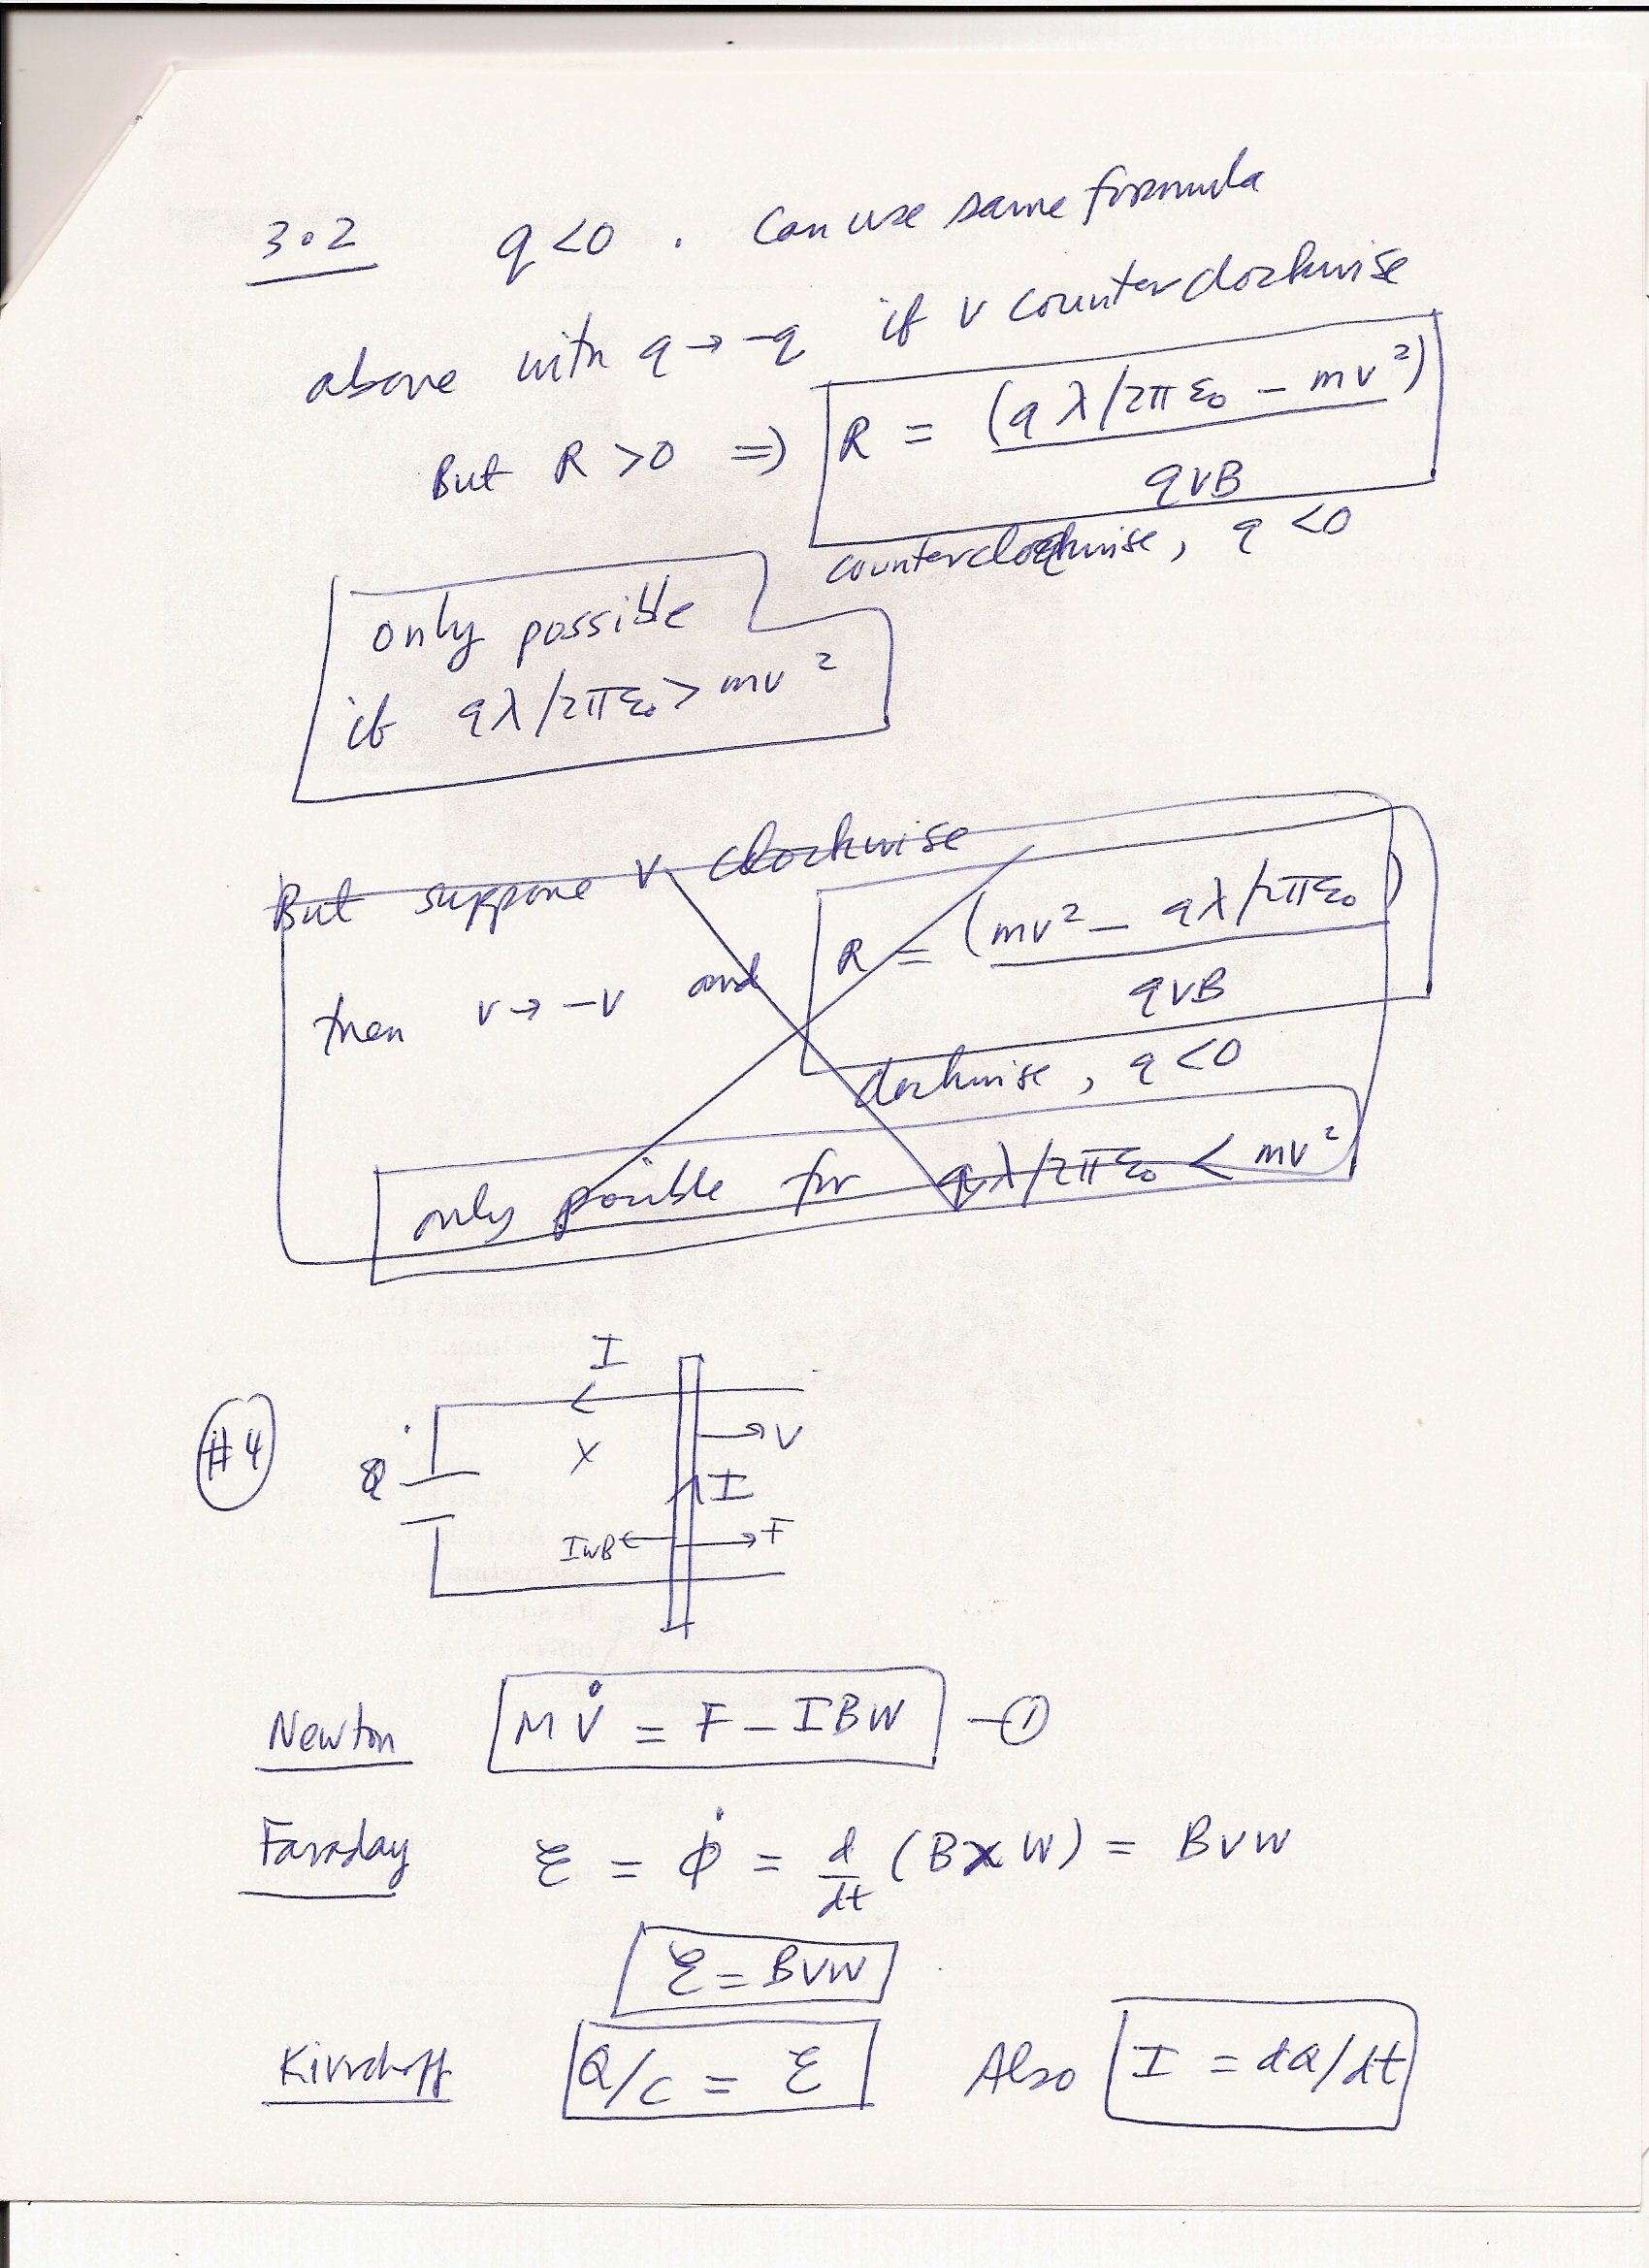 3.2 q<0 . Can use same formula
above with q → -q if v counterclockwise
But R >0 ⇒ R = (qλ/2πε₀ - mv²) / qvB
counterclockwise, q <0
only possible
if qλ/2πε₀ > mv²
But suppose v clockwise
then v → -v and R = (mv² - qλ/2πε₀) / qvB
clockwise, q <0
only possible for qλ/2πε₀ < mv²
#4
I
V
X
Q
I
IWB
F
Newton MV̇ = F - IBW -①
Faraday ℰ = ϕ̇ = d/dt (BxW) = BVW
ℰ = BVW
Kirrchoff Q/C = ℰ Also I = dQ/dt